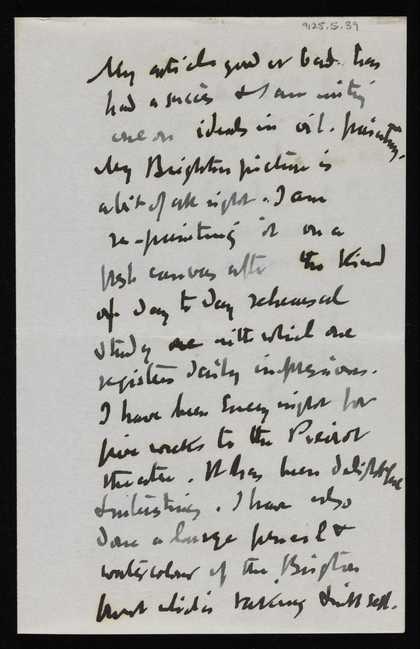 9125.5.39
My article good or bad has
had a succès & I am writing
one on ideals in oil-painting.
My Brighton picture is
a bit of all right. I am
re-painting it on a
fresh canvas after the kind
of day to day rehearsal
study one with which one
registers daily impressions.
I have been every night for
five weeks to the Pierrot
theatre. It has been delightful
& interesting. I have also
done a large pencil &
watercolour of the Brighton
front which is taking & will sell.